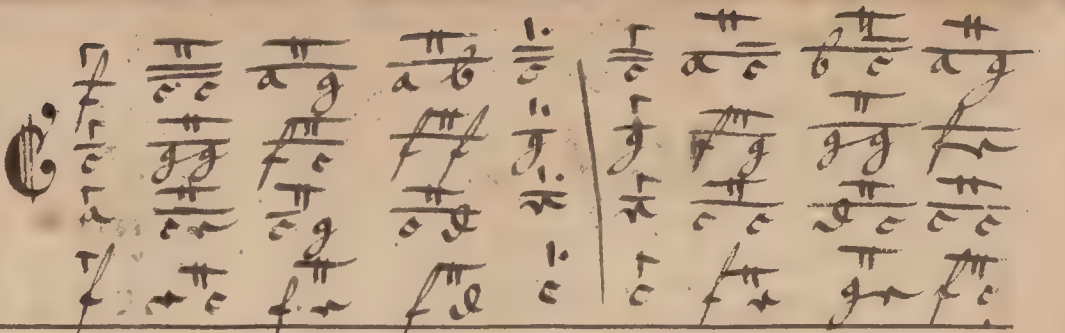 f c c a g a b c c a c b c a g
c g g f c f f g g f g g g f e
a c e c g c d e e c c d c c c
f c f e f d c c f e g e f c